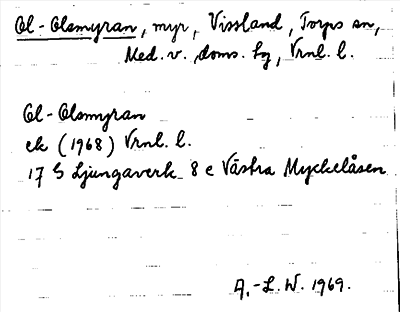 Ol-Olsmyran, myr, Vissland, Torps sn,
Med. v. doms. hg, Vrnl. l.
Ol-Olsmyran
ek (1968) Vrnl. l.
17 G Ljungaverk 8 e Västra Myckelåsen
A.-L.W. 1969.